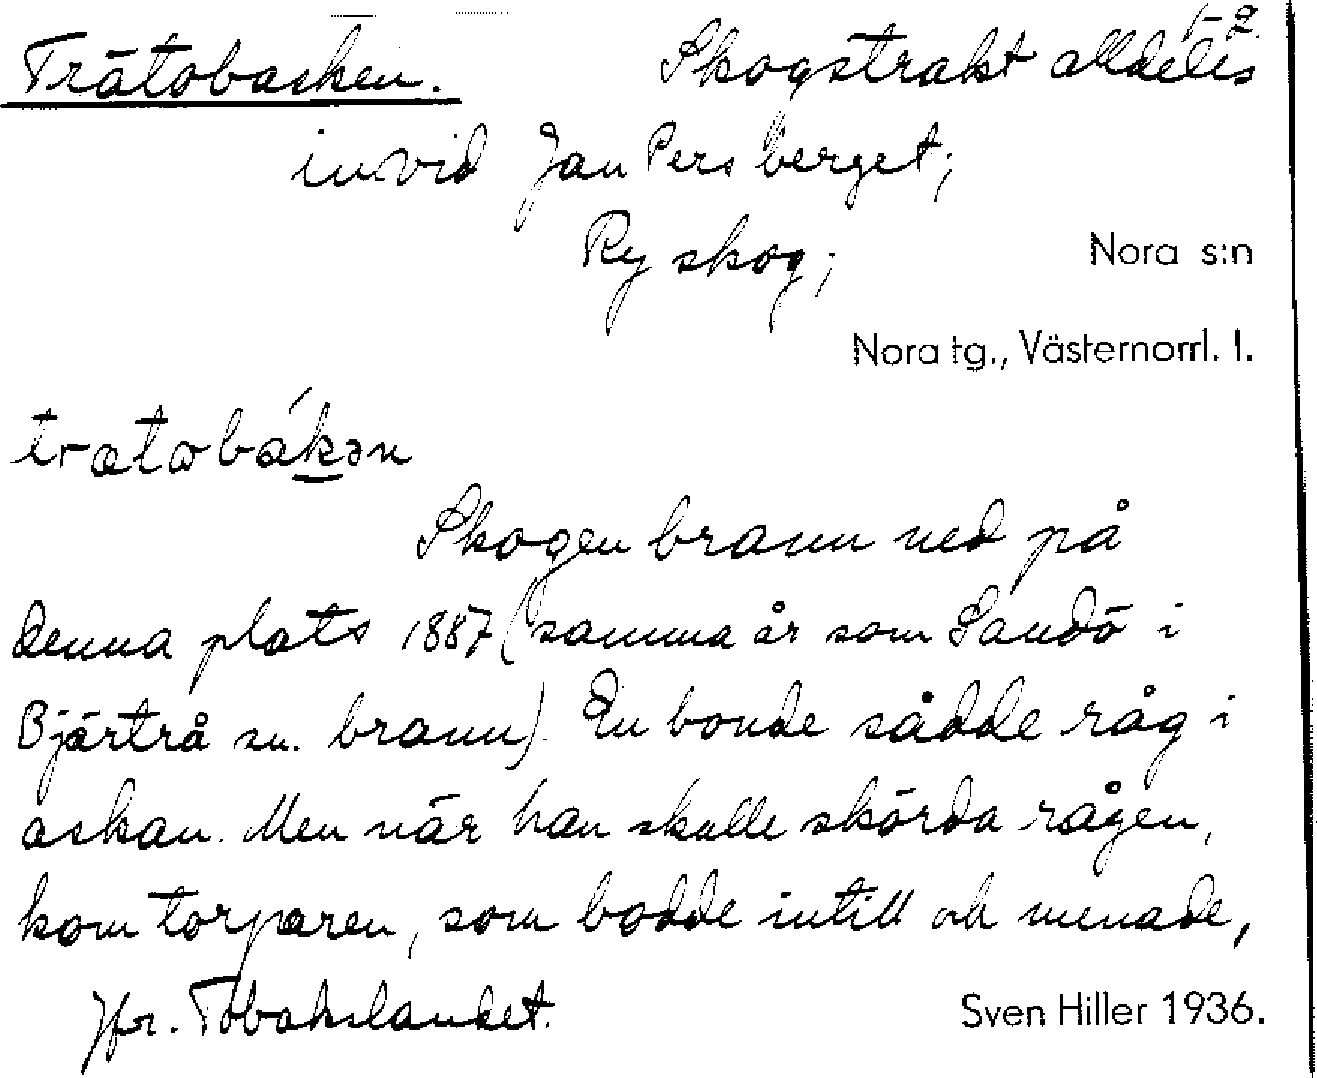 1-2
Trätobacken. Skogstrakt alldeles
invid Jan Persberget;
Ry skog; Nora s:n
Nora tg., Västernorrl. l.
trætobákən
Skogen brann ned på
denna plats 1887 (samma år som Sandö i
Bjärtrå sn. brann). En bonde sådde råg i
askan. Men när han skulle skörda rågen,
kom torparen, som bodde intill och menade,
Jfr. Tobakslandet.
Sven Hiller 1936.